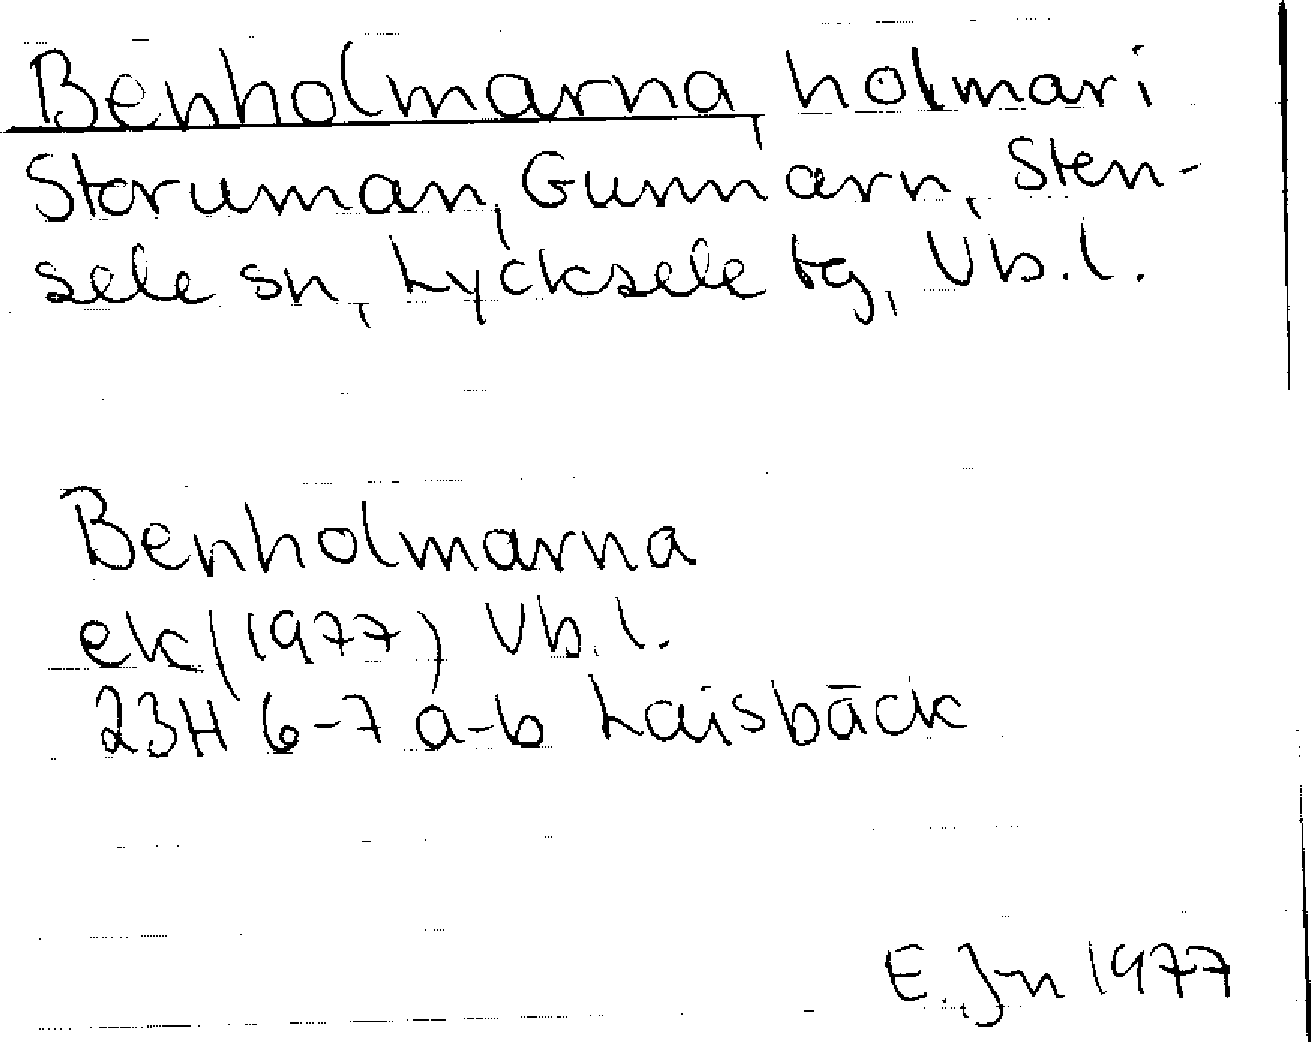 Benholmarna, holmar i
Storuman, Gunnarn, Sten-
sele sn, Lycksele tg, Vb.l.
Benholmarna
ek (1977) Vb.l.
23H 6-7 a-b Laisbäck
E. Jn 1977